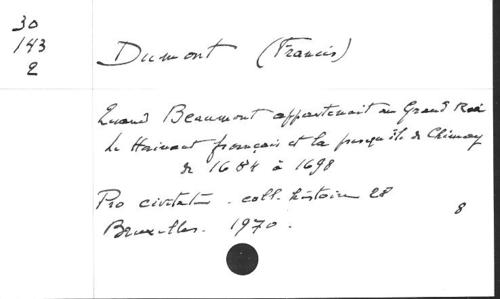 30
143
2
Dumont (Francis)
Quand Beaumont appartenait au Grand Roi
Le Hainaut français et la presqu'île de Chimay
de 1684 à 1698
Pro civitate. coll. histoire 28
Bruxelles. 1970.
8